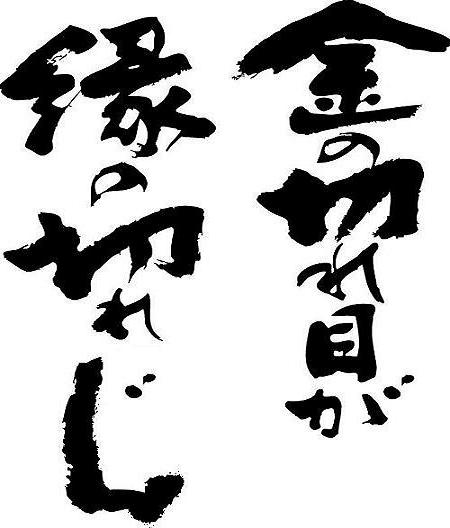 金の切れ目が
縁の切れじ